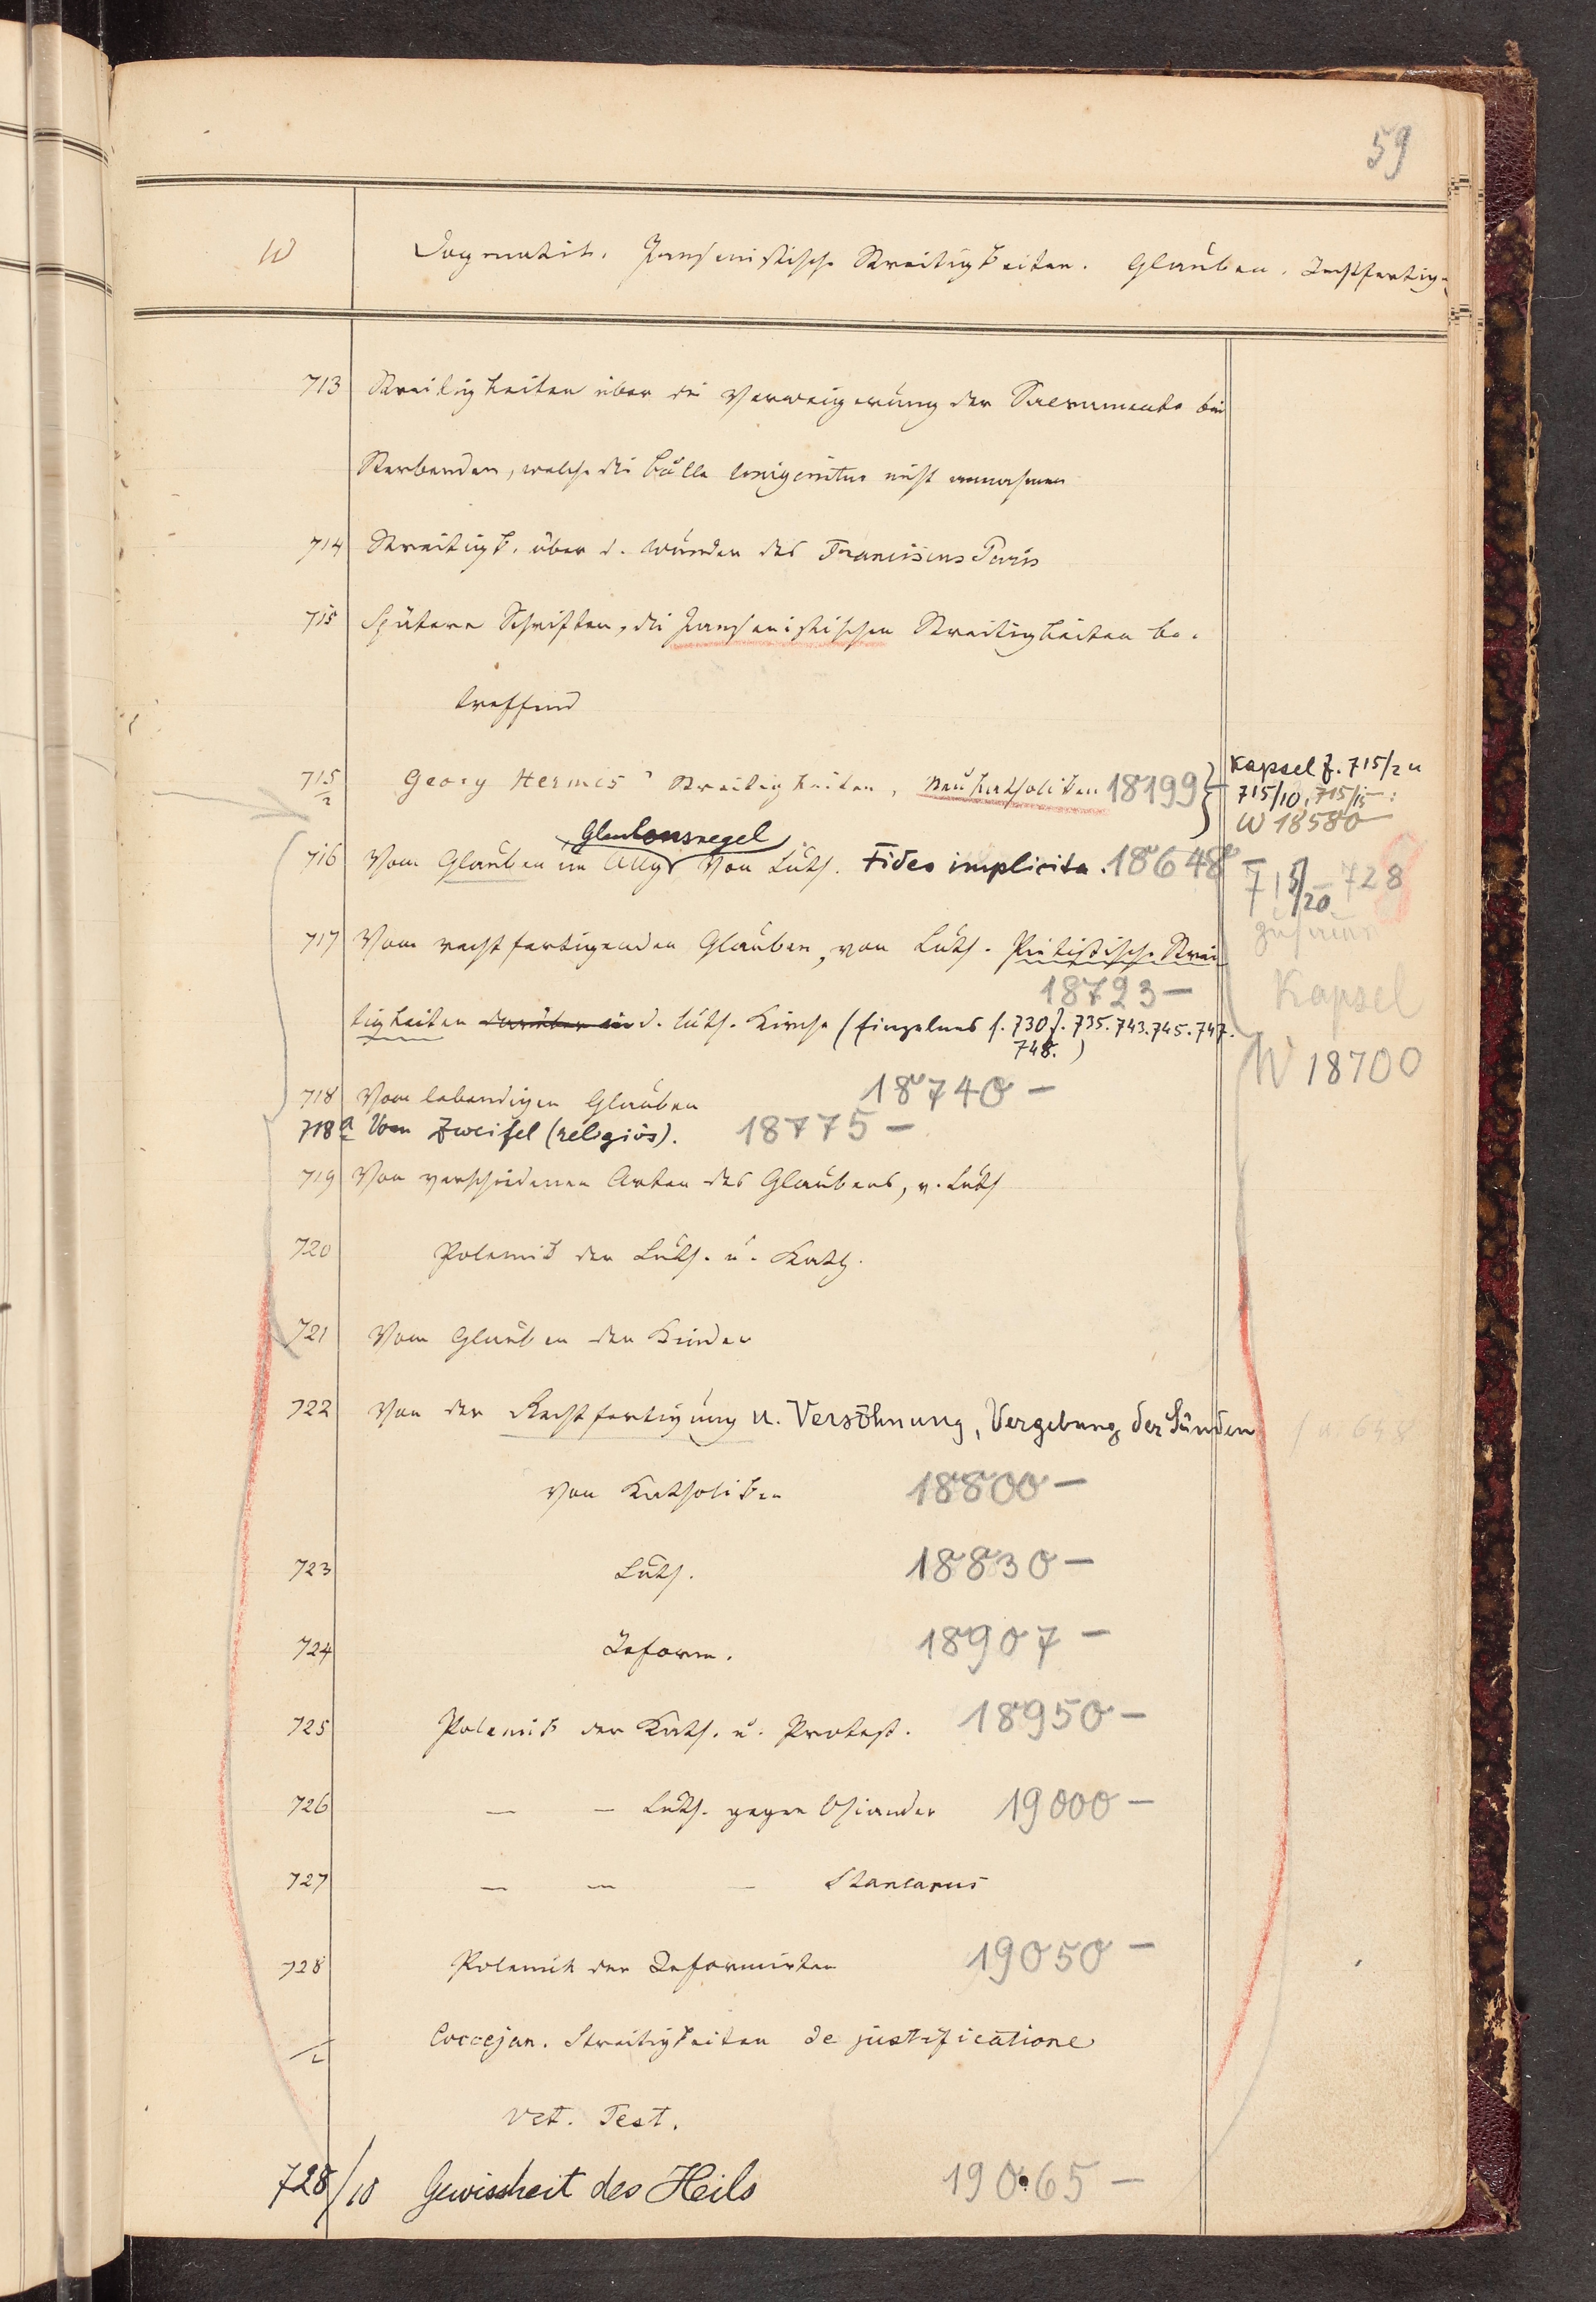 59
W Dogmatik. Jansenistische Streitigkeiten. Glauben. Rechtfertig-
713 Streitigkeiten über die Verweigerung der Sacramente bei
Sterbenden, welche die Bulle Unigenitus nicht annahmen
714 Streitigk. über d. Wunder des Franciscus Paris
715 Spätere Schriften, die Jansenistischen Streitigkeiten be-
treffend
715/2 Georg Hermes' Streitigkeiten, Neukatholiken 18199 } Kapsel z. 715/2 u
715/10, 715/15:
W 18580
Glaubensregel
716 Vom Glauben im Allg. Von Luth. Fides implicita. 18648 –
715/20 – 728
717 Vom rechtfertigenden Glauben, von Luth. Pietistische Strei
zusamm
18723 –
Kapsel
tigkeiten darüber in d. luth. Kirche (Einzelnes s. 730 f. 735. 743. 745. 747.
748.)
W 18700
718 Vom lebendigen Glauben 18740 –
718a Vom Zweifel (religiös). 18775 –
719 Von verschiedenen Arten des Glaubens, v. Luth
720 Polemik der Luth. u. Kath.
721 Vom Glauben der Kinder
722 Von der Rechtfertigung u. Versöhnung, Vergebung der Sünden / u. 648
von Katholiken 18800 –
723 Luth. 18830 –
724 Reform. 18907 –
725 Polemik der Kath. u. Protest. 18950 –
726 — — Luth. gegen Osiander 19000 –
727 — — — Stancarus
728 Polemik der Reformirten 19050 –
/2 Coccejan. Streitigkeiten de justificatione
Vet. Test.
728/10 Gewissheit des Heils 19065 –